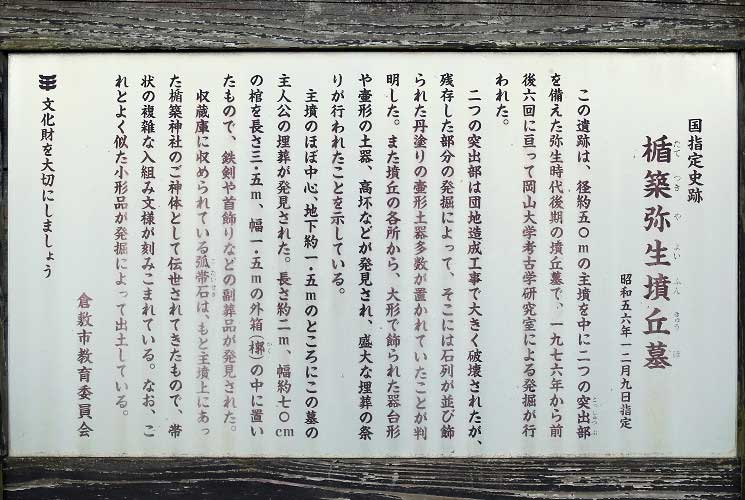 国指定史跡
楯築弥生墳丘墓
たてつきやよいふんきゅうぼ
昭和五六年一二月九日指定
この遺跡は、径約五〇mの主墳を中に二つの突出部
とっしゅつぶ
を備えた弥生時代後期の墳丘墓で、一九七六年から前
後六回に亘って岡山大学考古学研究室による発掘が行
われた。
二つの突出部は団地造成工事で大きく破壊されたが、
残存した部分の発掘によって、そこには石列が並び飾
られた丹塗りの壺形土器多数が置かれていたことが判
明した。また墳丘の各所から、大形で飾られた器台形
や壺形の土器、高坏などが発見され、盛大な埋葬の祭
りが行われたことを示している。
主墳のほぼ中心、地下約一・五mのところにこの墓の
主人公の埋葬が発見された。長さ約二m、幅約七〇cm
の棺を長さ三・五m、幅一・五mの外箱(槨)の中に置い
かく
たもので、鉄剣や首飾りなどの副葬品が発見された。
収蔵庫に収められている弧帯石は、もと主墳上にあっ
こたいせき
た楯築神社のご神体として伝世されてきたもので、帯
状の複雑な入組み文様が刻みこまれている。なお、こ
れとよく似た小形品が発掘によって出土している。
倉敷市教育委員会
文化財を大切にしましょう